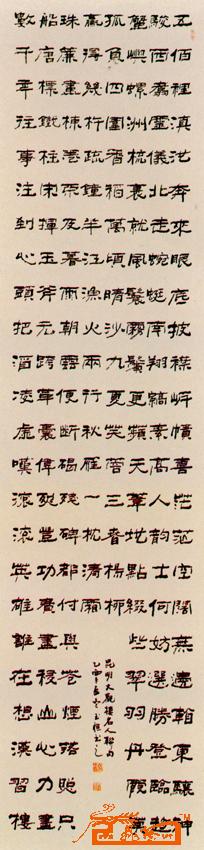 五佰裡滇池奔來眼底披襟岸幘喜茫茫空闊無邊看東驤神
駿西翥靈儀北走蜿蜒南翔縞素高人韻士何妨選勝登臨趁
蟹嶼螺洲梳裹就風鬟霧鬢更蘋天葦地點綴些翠羽丹霞莫
孤負四圍香稻萬頃晴沙九夏芙蓉三春楊柳
數千年往事注到心頭把酒凌虛嘆滾滾英雄誰在想漢習樓
船唐標鐵柱宋揮玉斧元跨革囊偉烈豐功費盡移山心力盡
珠簾畫棟卷不及暮雨朝雲便斷碣殘碑都付與蒼煙落照只
贏得幾杵疏鐘半江漁火兩行秋雁一枕清霜
昆明大觀樓名人聯句
乙酉